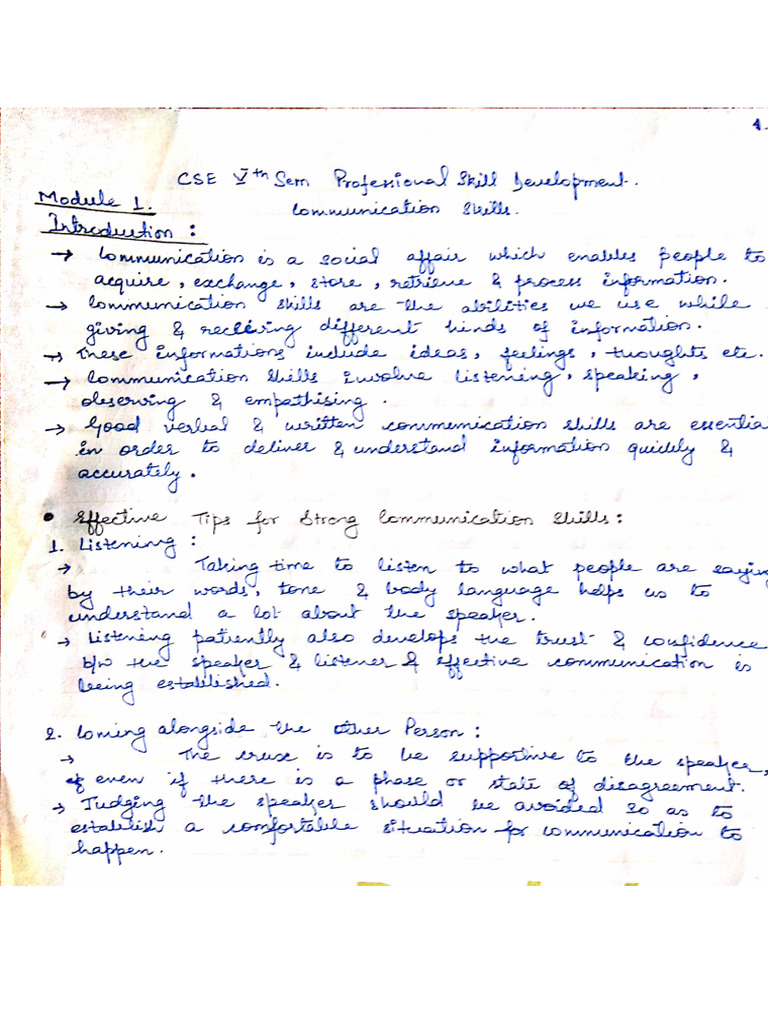 4.
CSE Vth Sem Professional Skill Development.
Module 1.
Communication Skills.
Introduction :
→ Communication is a social affair which enables people to
acquire, exchange, store, retrieve & process information.
→ Communication skills are the abilities we use while
giving & receiving different kinds of information.
→ These informations include ideas, feelings, thoughts etc.
→ Communication skills involve listening, speaking,
observing & empathising.
→ Good verbal & written communication skills are essential
in order to deliver & understand information quickly &
accurately.
• Effective Tips for Strong Communication Skills:
1. Listening :
→ Taking time to listen to what people are saying
by their words, tone & body language helps us to
understand a lot about the speaker.
→ Listening patiently also develops the trust & confidence
b/w the speaker & listener & effective communication is
being established.
2. Coming alongside the Other Person :
→ The crux is to be supportive to the speaker,
even if there is a phase or state of disagreement.
→ Judging the speaker should be avoided so as to
establish a comfortable situation for communication to
happen.